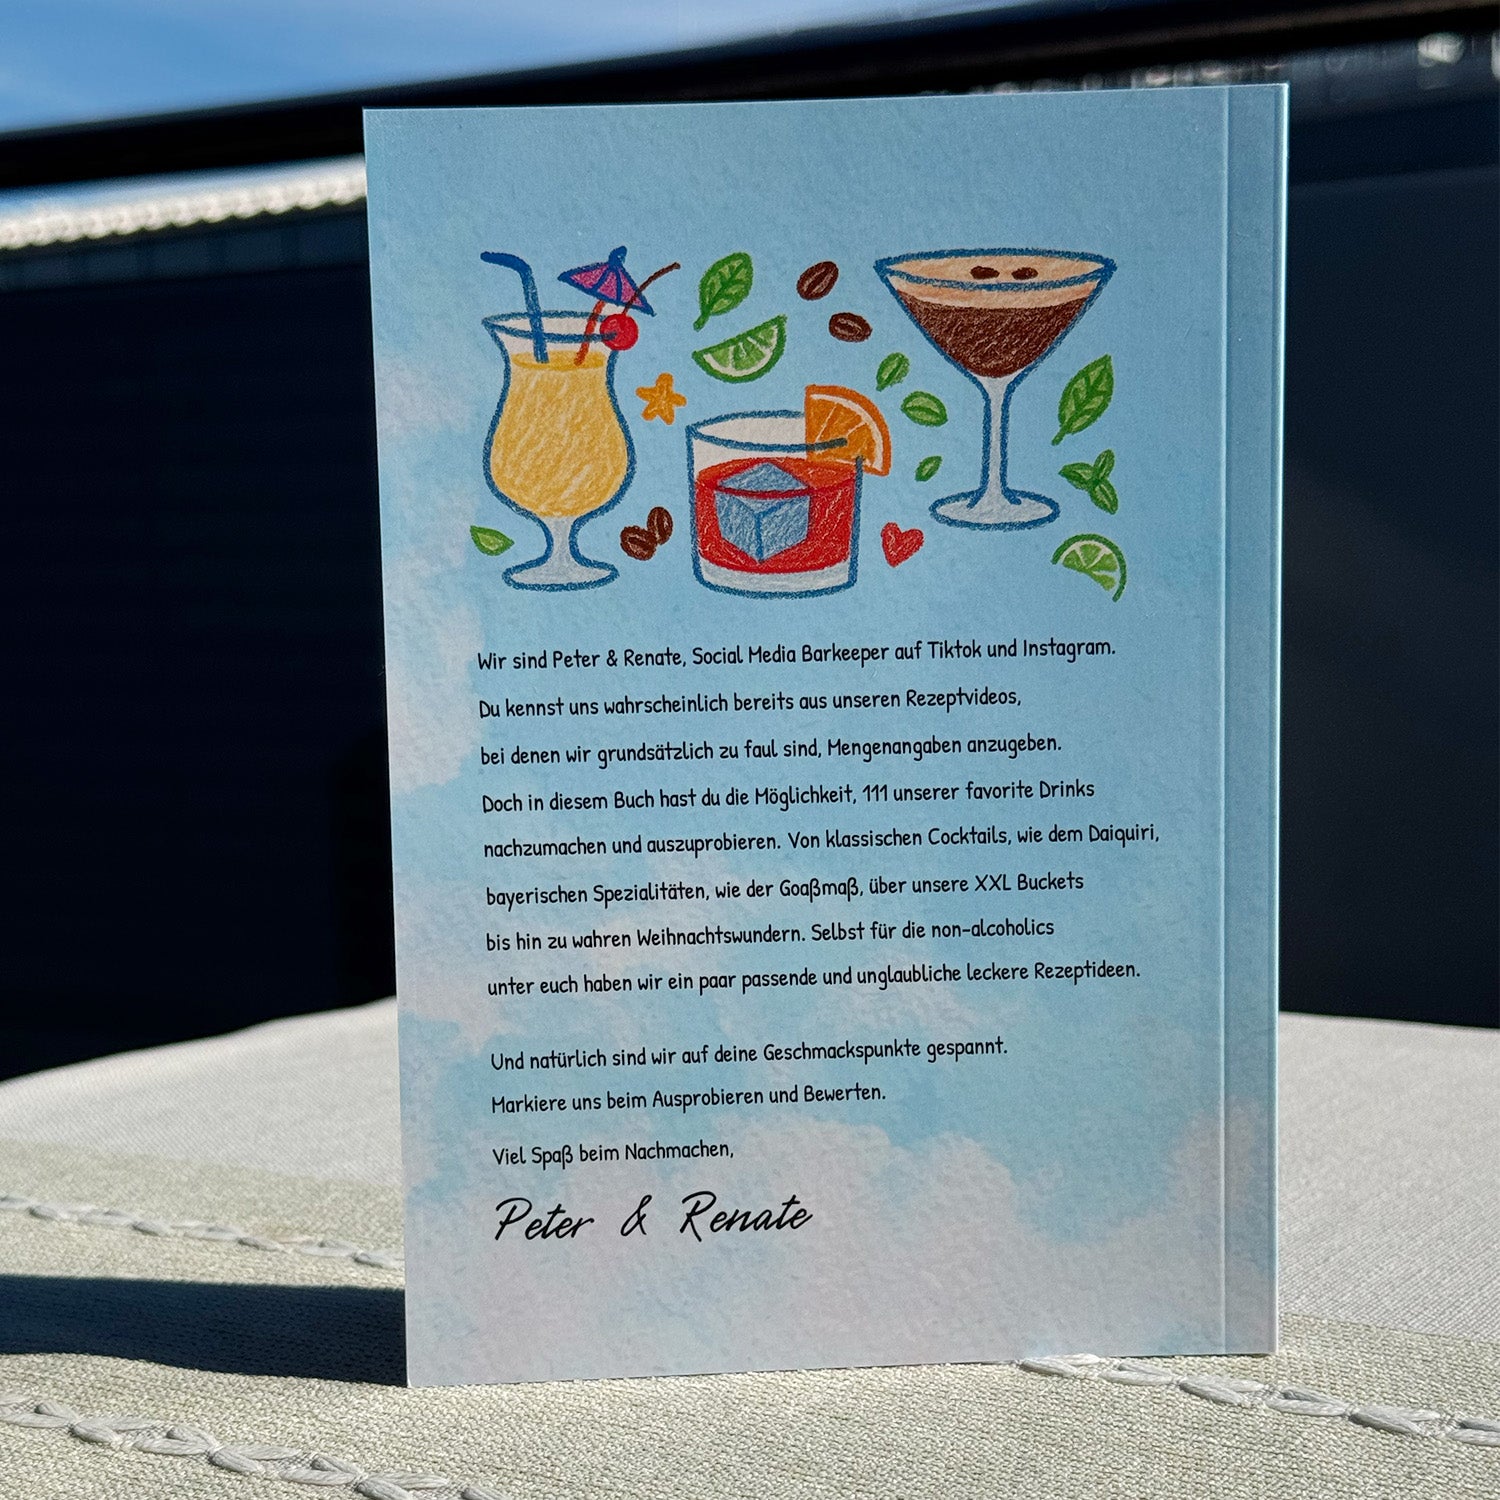 Wir sind Peter & Renate, Social Media Barkeeper auf Tiktok und Instagram.
Du kennst uns wahrscheinlich bereits aus unseren Rezeptvideos,
bei denen wir grundsätzlich zu faul sind, Mengenangaben anzugeben.
Doch in diesem Buch hast du die Möglichkeit, 111 unserer favorite Drinks
nachzumachen und auszuprobieren. Von klassischen Cocktails, wie dem Daiquiri,
bayerischen Spezialitäten, wie der Goaßmaß, über unsere XXL Buckets
bis hin zu wahren Weihnachtswundern. Selbst für die non-alcoholics
unter euch haben wir ein paar passende und unglaubliche leckere Rezeptideen.
Und natürlich sind wir auf deine Geschmackspunkte gespannt.
Markiere uns beim Ausprobieren und Bewerten.
Viel Spaß beim Nachmachen,
Peter & Renate